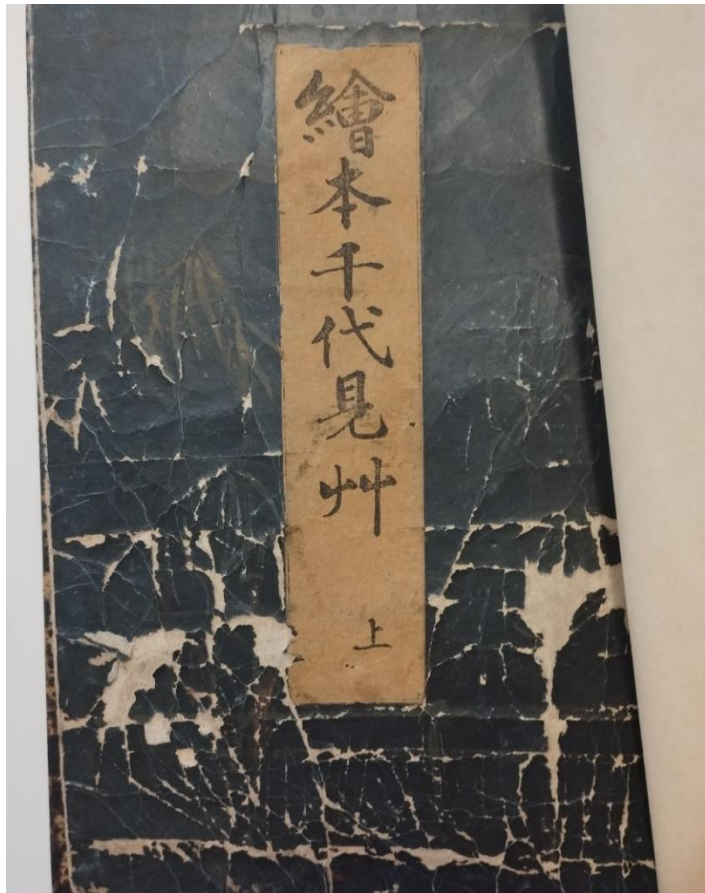 繪本千代見艸
上